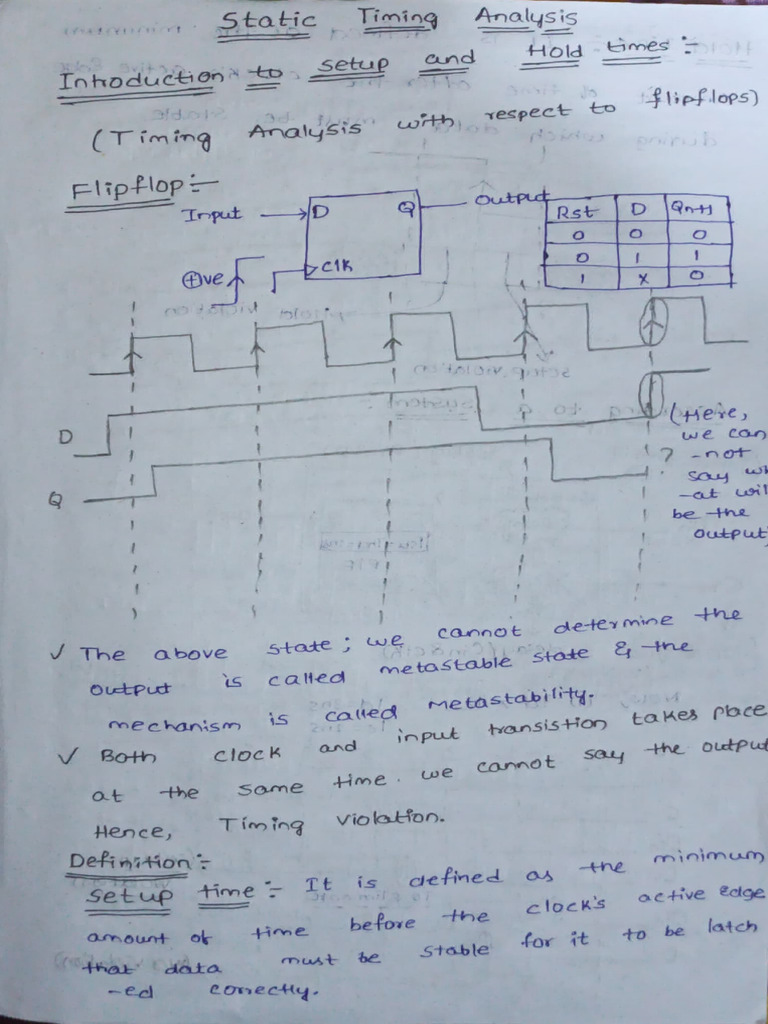 Static Timing Analysis
Introduction to setup and Hold times :-
(Timing Analysis with respect to flipflops)
Flipflop:-
Input → D Q Output
⊕ve clk
Rst D Qn+1
0 0 0
0 1 1
1 x 0
D
Q
(Here,
we can
? -not
say wh
-at wil
be the
output)
✓ The above state; we cannot determine the
output is called metastable state & the
mechanism is called metastability.
✓ Both clock and input transistion takes place
at the same time. we cannot say the output
Hence, Timing violation.
Definition:-
setup time:- It is defined as the minimum
amount of time before the clock's active edge
that data must be stable for it to be latch
-ed correctly.